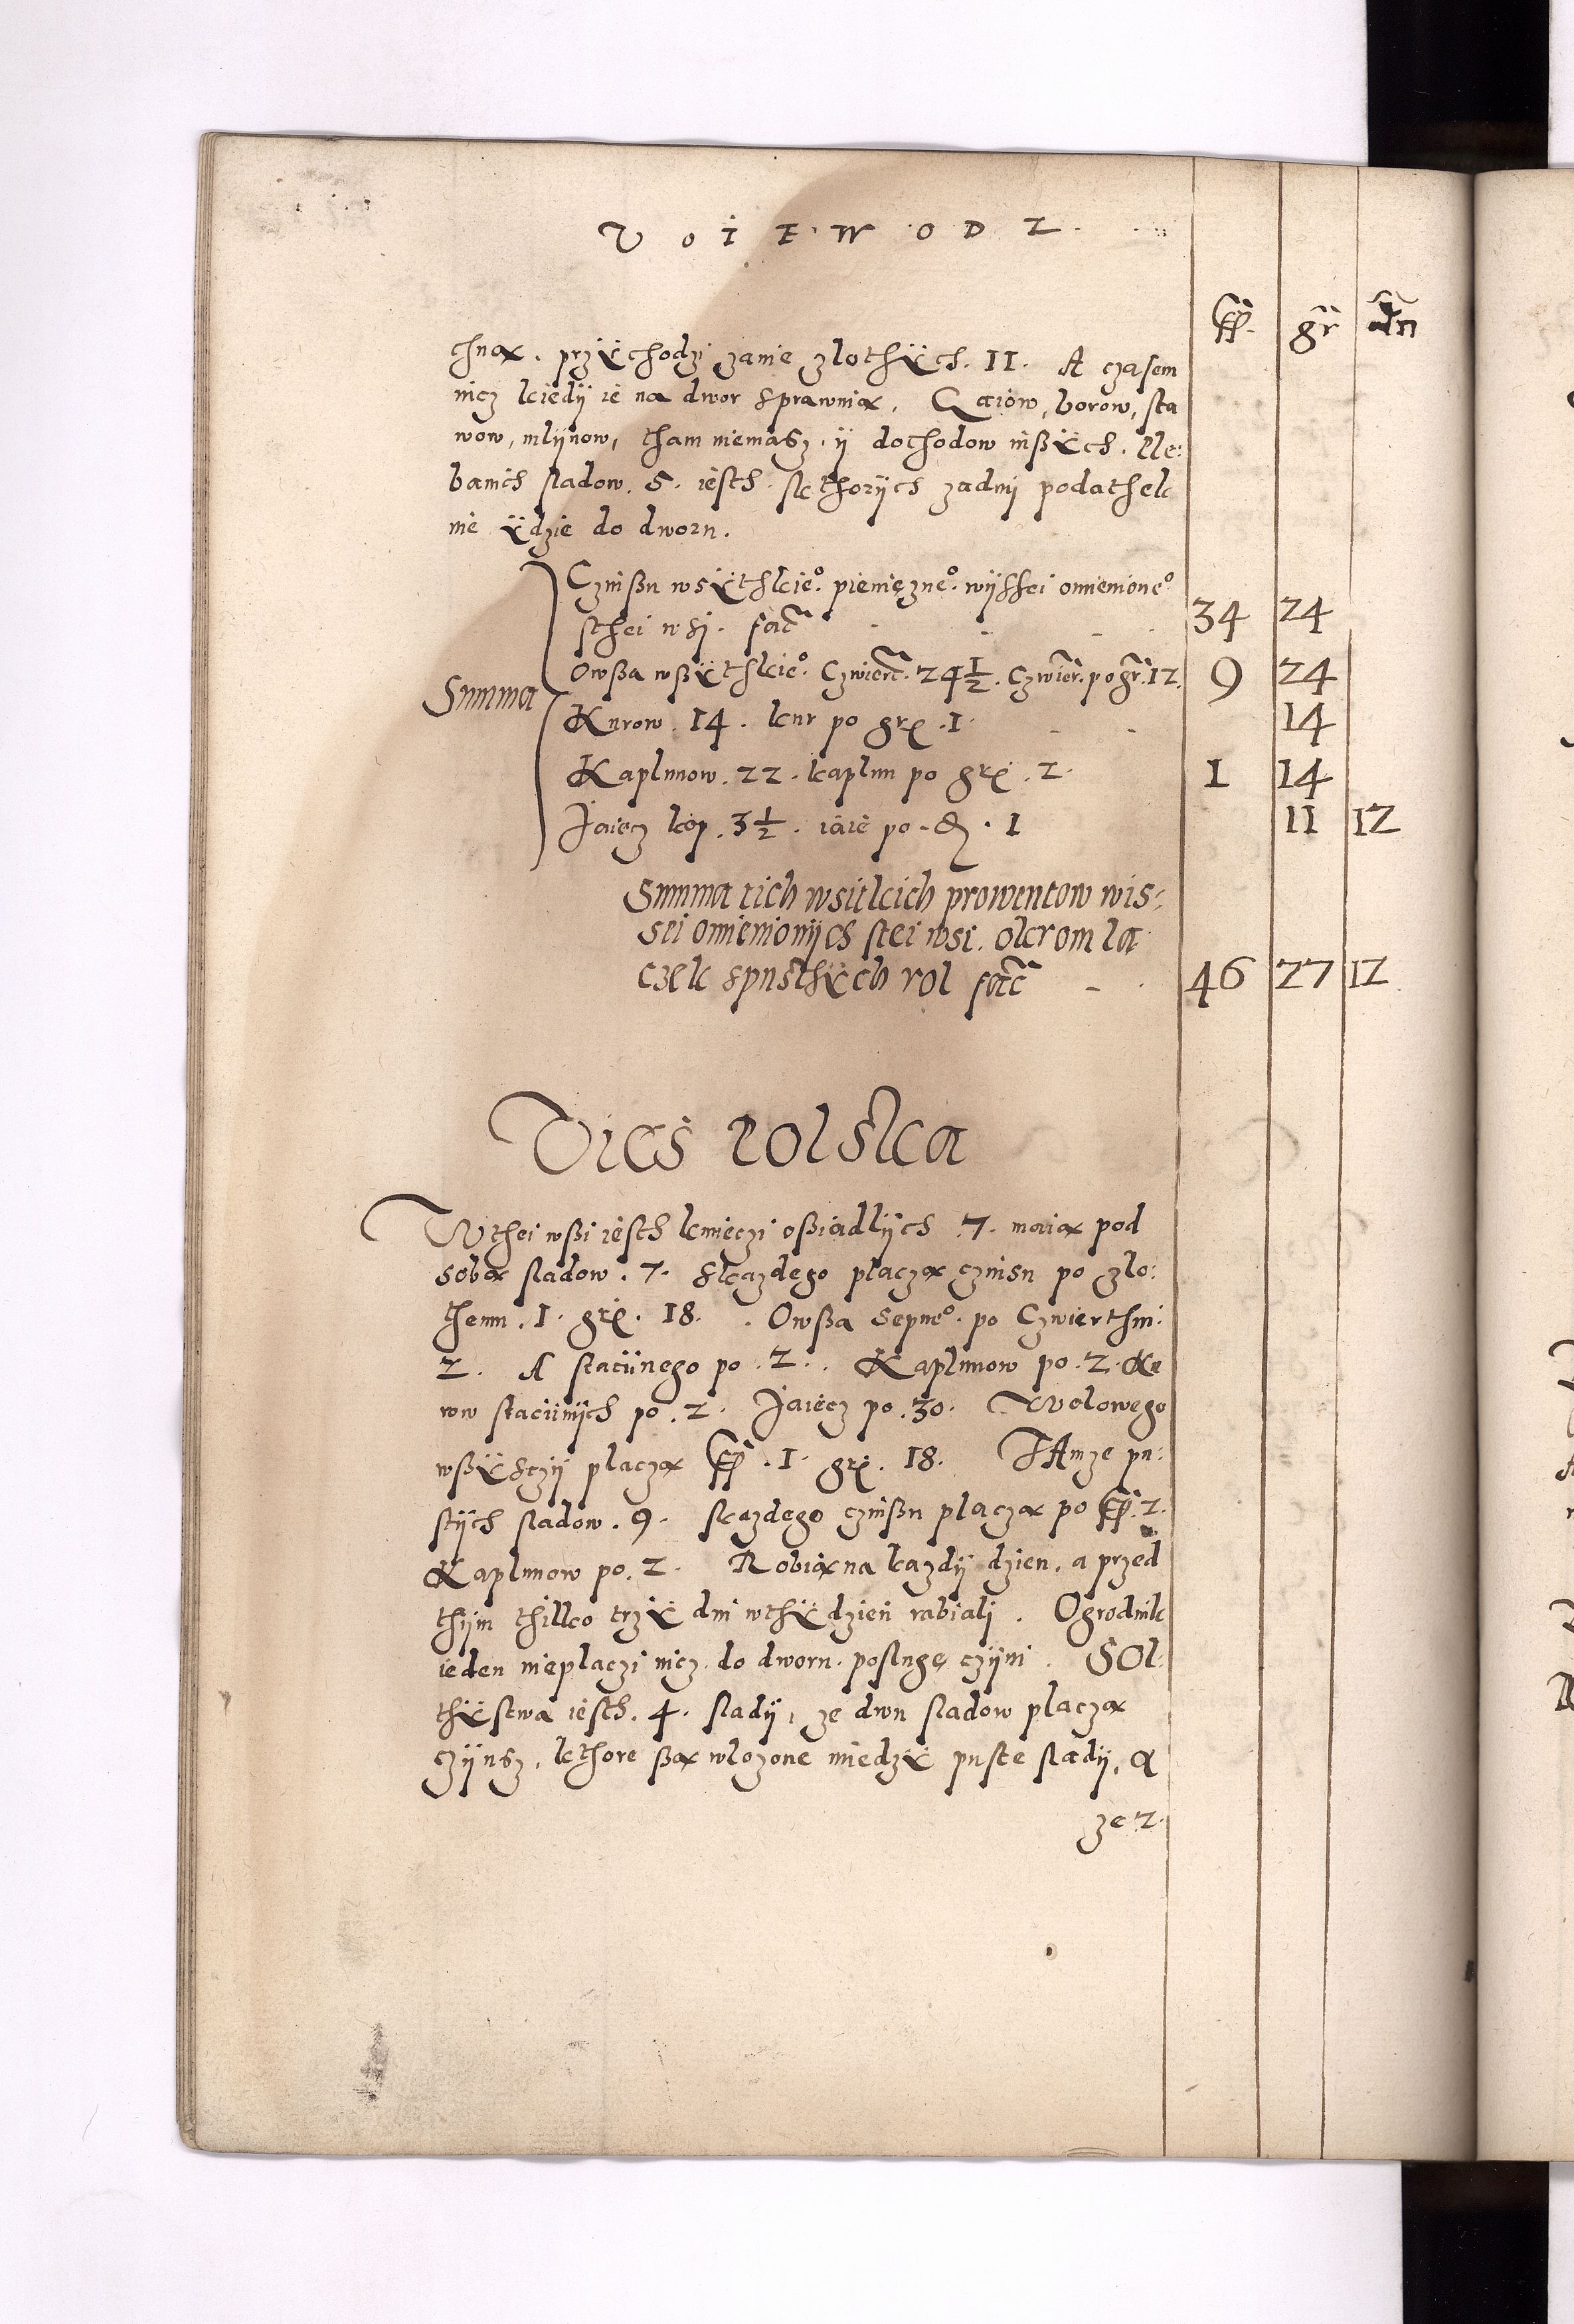 VOIEWODZ
ff. gr dn
thną. przÿchodzi zanie zlothÿch. 11. A czasem
nicz kiedÿ ie na dwor sprawuią. Gaiow, borow, sta
wow, mlÿnow, tham niemasz, ÿ dochodow inßÿch. Ple:
banich sladow. 5. iesth. kthorÿch zadnÿ podathek
nie ÿdzie do dworu.
Summa
Czinßu wsÿthkie⁰. pienięzne⁰. wÿssei omienione⁰
sthei wsÿ. facit 34 24
Owßa wßÿthkie⁰. Czwierc. 24 1/2. Czwier. po gr. 12. 9 24
Kurow. 14. kur po gr. 1. 14
Kaplunow. 22. kaplun po gr. 2. 1 14
Jaiecz kop. 3 1/2. iaie po. d. 1 11 12
Summa tich wsitkich prowentow wis:
sei omienionÿch stei wsi. okrom ła
czek spusthÿch rol facit 46 27 12
Vies Polska
Wthei wßi iesth kmieczi oßiadlÿch. 7. maią pod
sobą sladow. 7. skazdego placzą czinsu po zlo:
themu. 1. gr. 18. Owßa sepne⁰. po Czwierthni:
2. A staciinego po. 2. Kaplunow po. 2. Ku
row staciinÿch po. 2. Jaiecz po. 30. Wolowego
wßÿsczÿ placzą ff. 1. gr. 18. TAmze pu:
stÿch sladow. 9. skazdego czinßu placzą po ff. 2.
Kaplunow po. 2. Robią na kazdÿ dzien, a przed
thÿm thilko trzÿ dni wthÿdzien rabiali. Ogrodnik
ieden nieplaczi nicz. do dworu. poslugę czÿni. SOl:
thÿstwa iesth. 4. sladÿ, ze dwu sladow placzą
czÿnsz, kthore ßą wlozone miedzÿ puste sladÿ, a
ze 2.